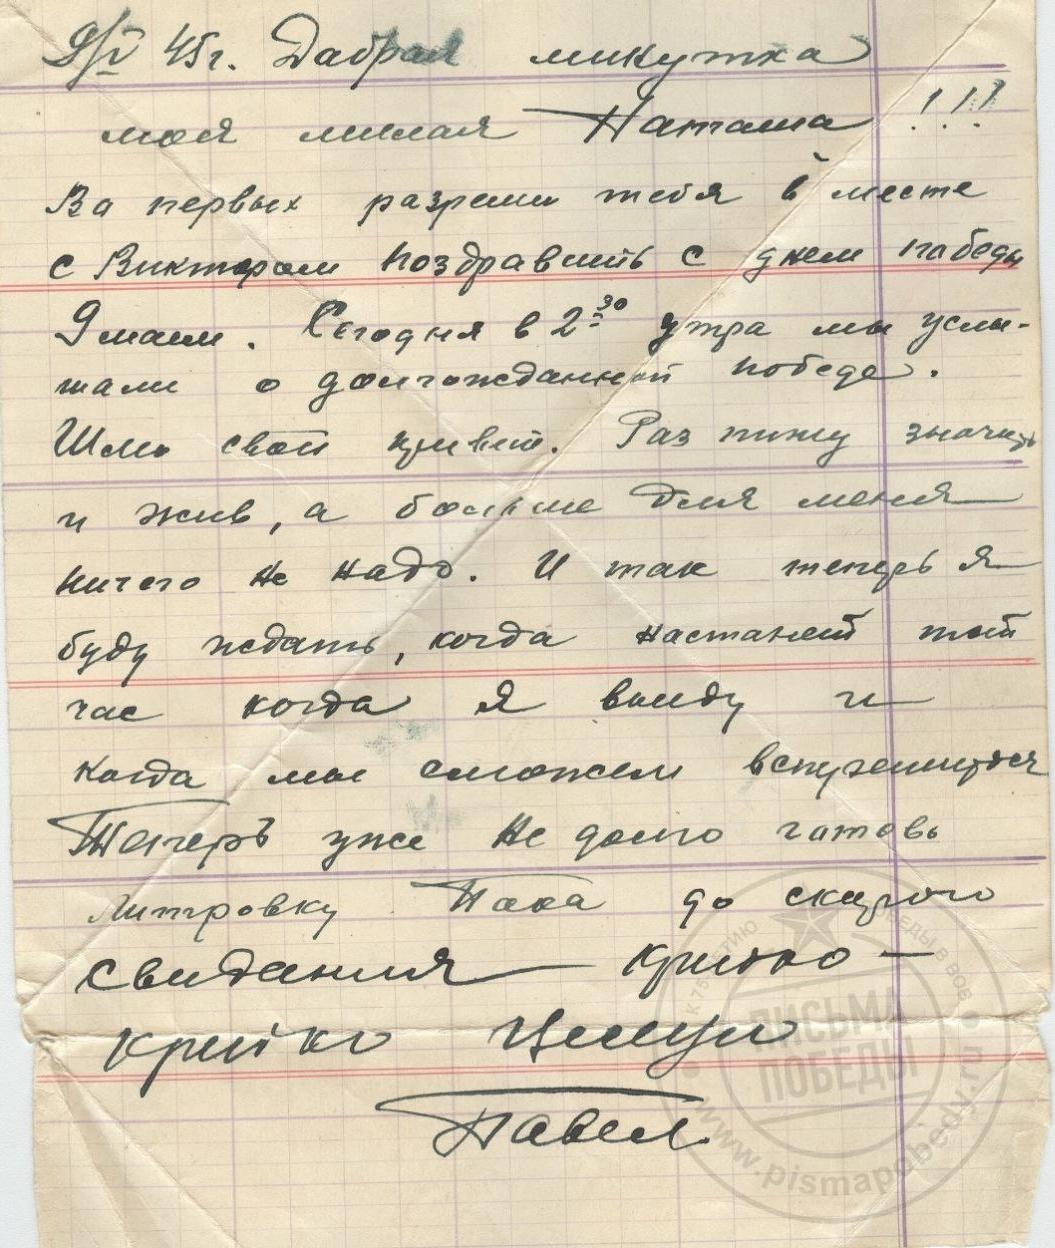 9/V 45г. Дабрая минутка
моя милая Наташа !!!
Ва первых разреши тебя в месте
с Виктором поздравить с днем победы
9 маем. Сегодня в 2 30 утра мы услы-
шали о долгожданной победе.
Шлю свой привет. Раз пишу значить
и жив, а больше для меня
ничего не надо. И так теперь я
буду ждать, когда настанет той
час когда я выйду и
когда мы сможем
Теперь уже не долго готовь
Литровку Пока до скорого
свидания крепко –
крепко Целую
Павел
К 75-ЛЕТИЮ ПОБЕДЫ В ВОВ
ПИСЬМА
ПОБЕДЫ
www.pismapobedy.ru